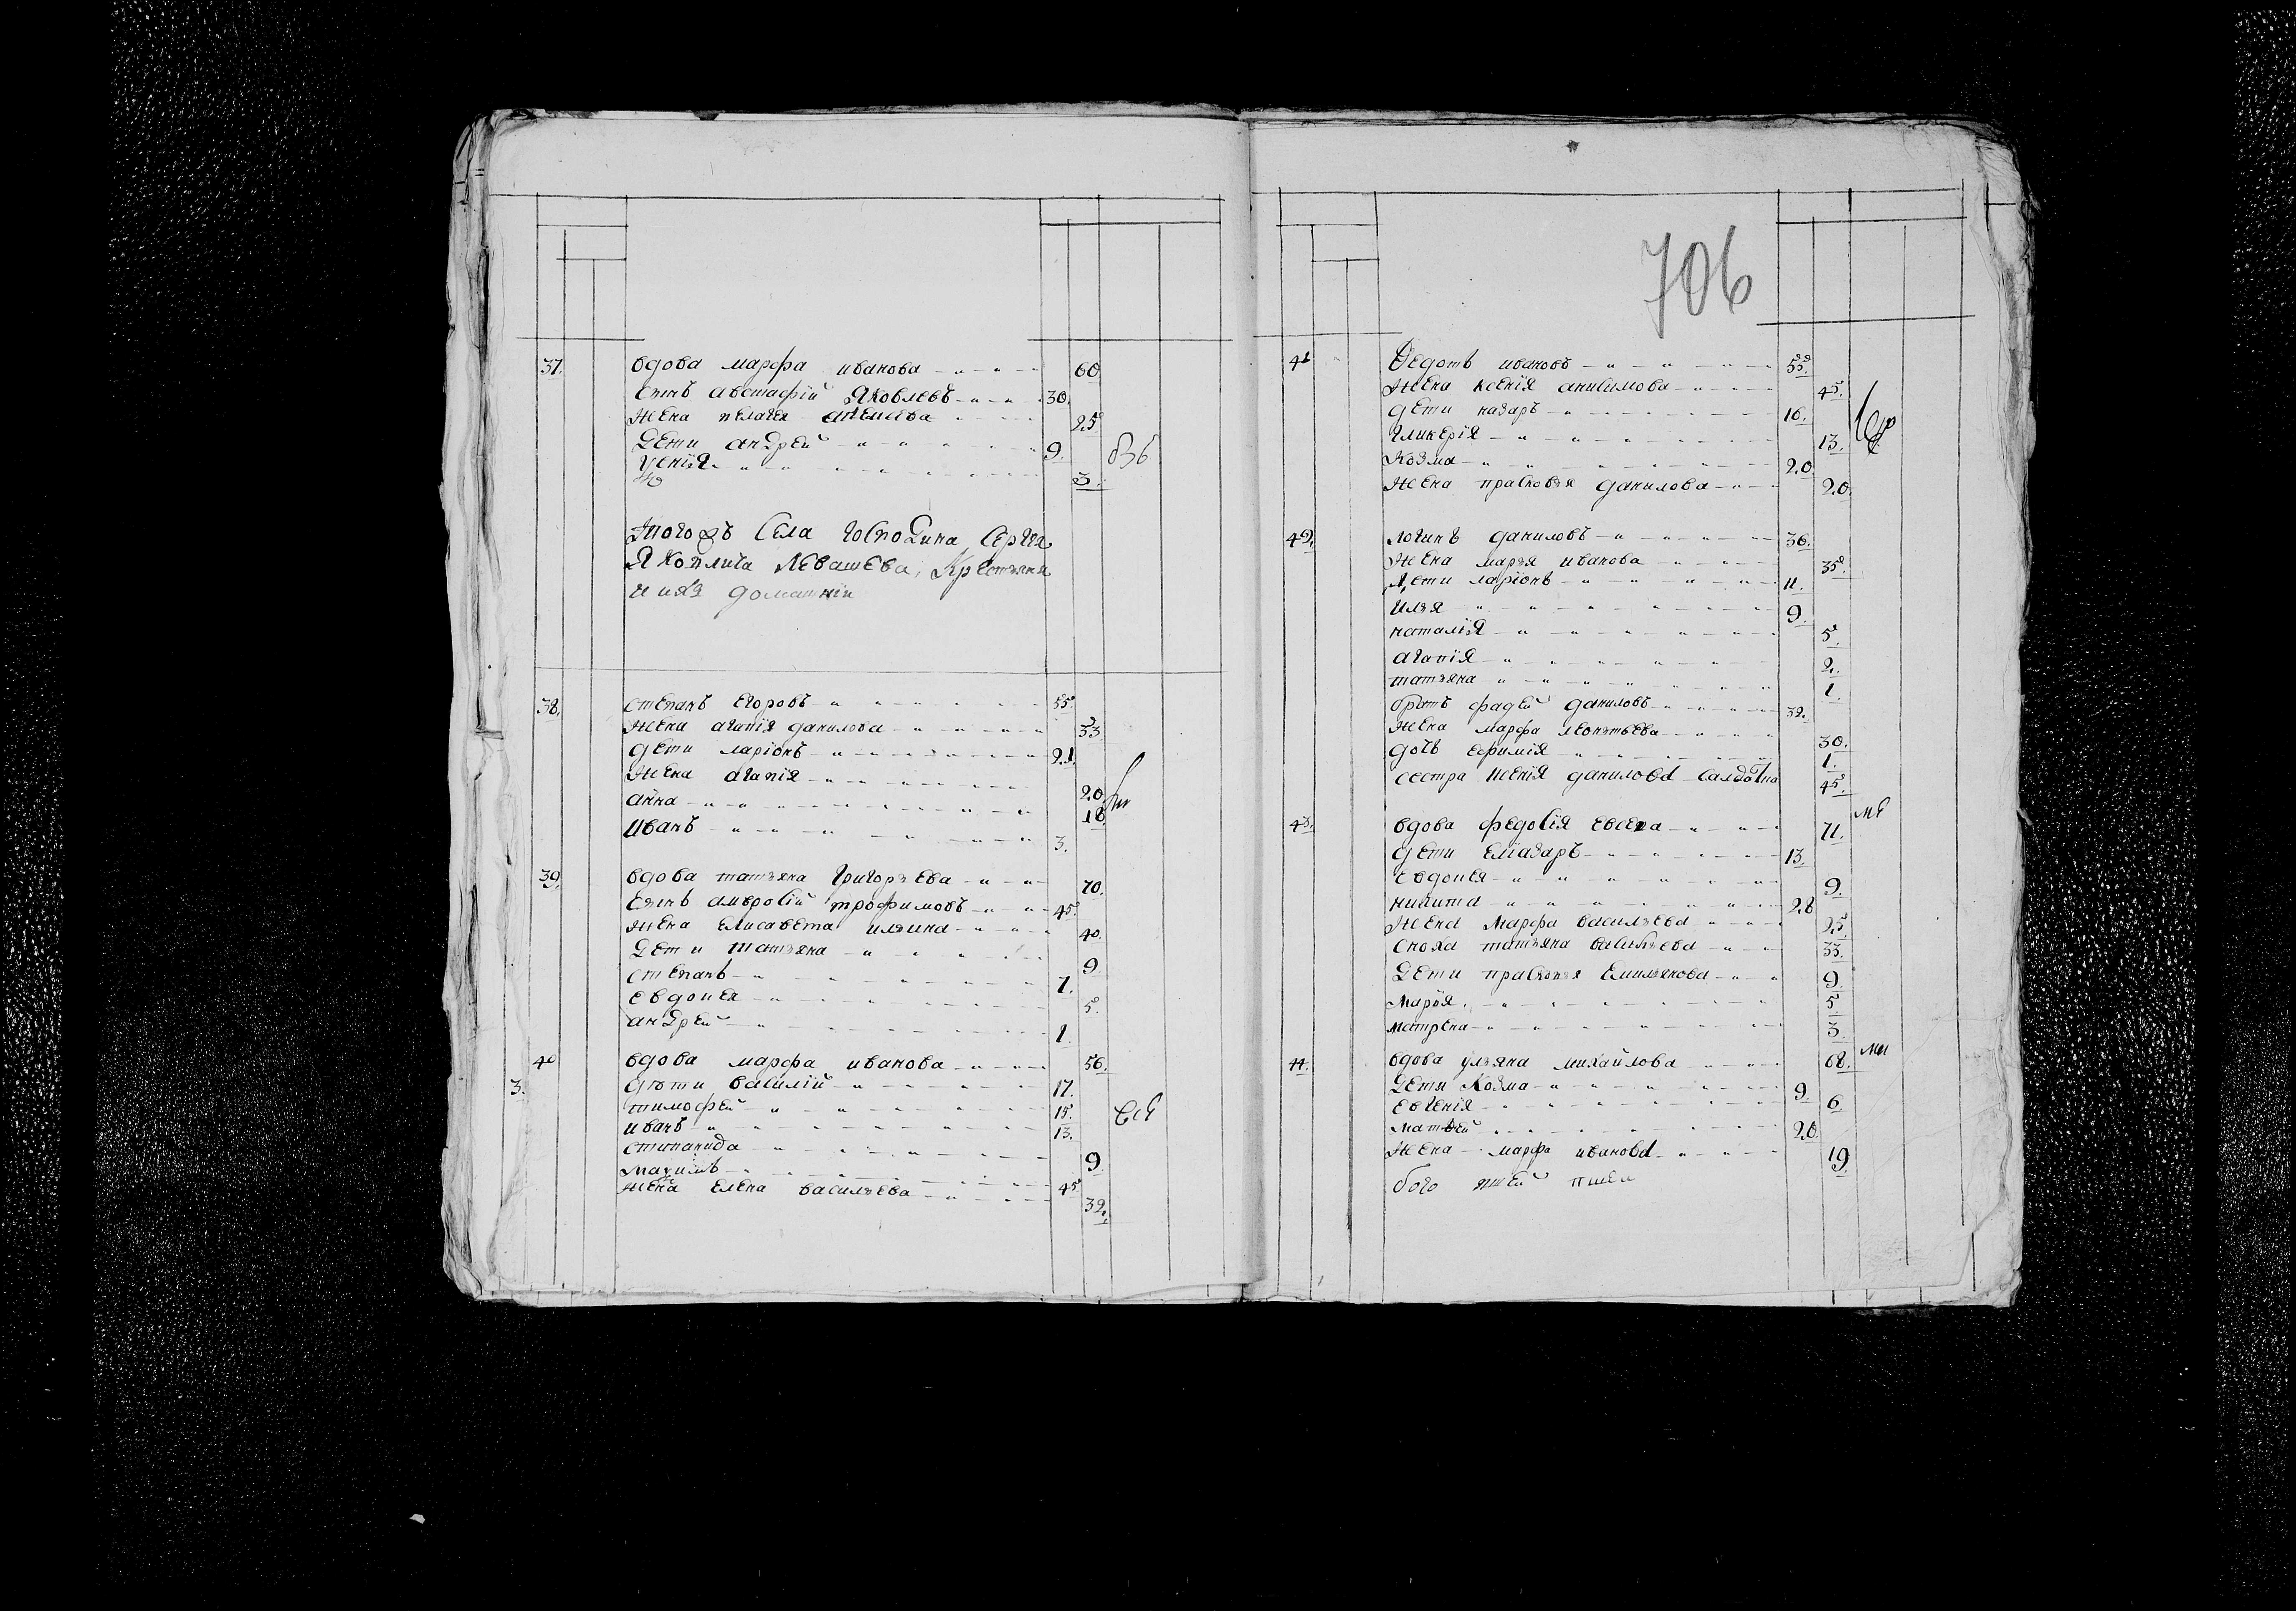 37. вдова марфа иванова 60.
сынъ австафий Яковлевъ 30.
жена пелагея 25
Дети андрей 9. 836
3.
того жъ Села госпоДина Сергея
Яковлича Левашева, Крестьяня
домашнии
38. степанъ Егоровъ 55.
жена агапїя данилова 33
дети ларїонъ 21.
жена агапїя 20.
анна 18.
иванъ 3.
39. вдова татьяна григорьева 70.
сынъ амвросїй трофимовъ 45.
жена Елисавета ильина 40.
Дети татьяна 9.
степанъ 7.
евдокея 5.
анДрей 1.
40 вдова марфа иванова 56.
3. дѣти василїй 17.
тимофей 15.
иванъ 13.
степанида 9.
45
жена Елена васильева 39.
706
41 Федотъ ивановъ 55.
жена ксенїя анисимова 45.
дети назаръ 16.
гликерїя 13.
Козма 20.
жена прасковья данилова 20.
42. логинъ даниловъ 36.
жена марья иванова 35.
дети ларїонъ 11.
илья 9.
наталїя 5.
агапїя 2.
татьяна 1.
братъ фадей даниловъ 32.
жена марфа леонтьева 30.
дочь ефимїя 1.
сестра ксенїя данилова салдатка 45.
43. вдова федосїя евсева 71.
дети Елїазаръ 13.
евдокея 9.
никита 28
жена Марфа васильева 25
сноха татьяна васильева 33.
Дети прасковья Емильянова 9.
Марїя 5.
матрена 3.
44. вдова ульяна михайлова 68.
Дети Козма 9.
евгенїя 6.
матвей 20.
жена марфа иванова 19.